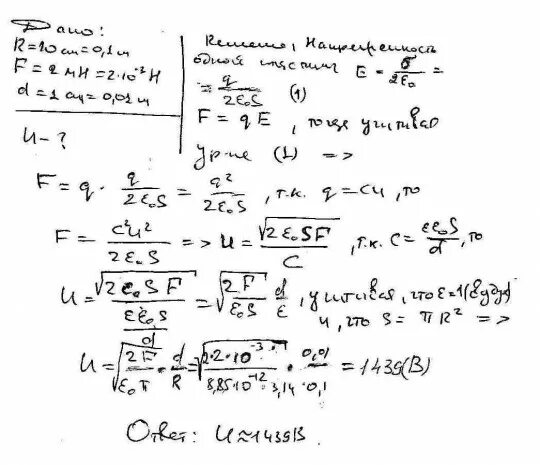 Дано:
R=10см=0,1м
F=2мН=2·10⁻²Н
d=1см=0,01м
U-?
Решение: Напряженность
одной пластины E = σ/2ε₀ =
= q/2ε₀S (1)
F = qE, тогда учитывая
ур-ние (1) =>
F = q · q/2ε₀S = q²/2ε₀S, т.к. q=CU, то
F = C²U²/2ε₀S => U = √(2ε₀SF)/C, т.к. C= εε₀S/d, то
U = √(2ε₀SF)/(εε₀S/d) = √(2F/ε₀S) d/ε, учитывая, что ε=1(воздух)
и, что S= πR² =>
U = √(2F/ε₀π) · d/R = √(2·2·10⁻³/8,85·10⁻¹²·3,14) · 0,01/0,1 = 1439(В)
Ответ: U≈1439В.